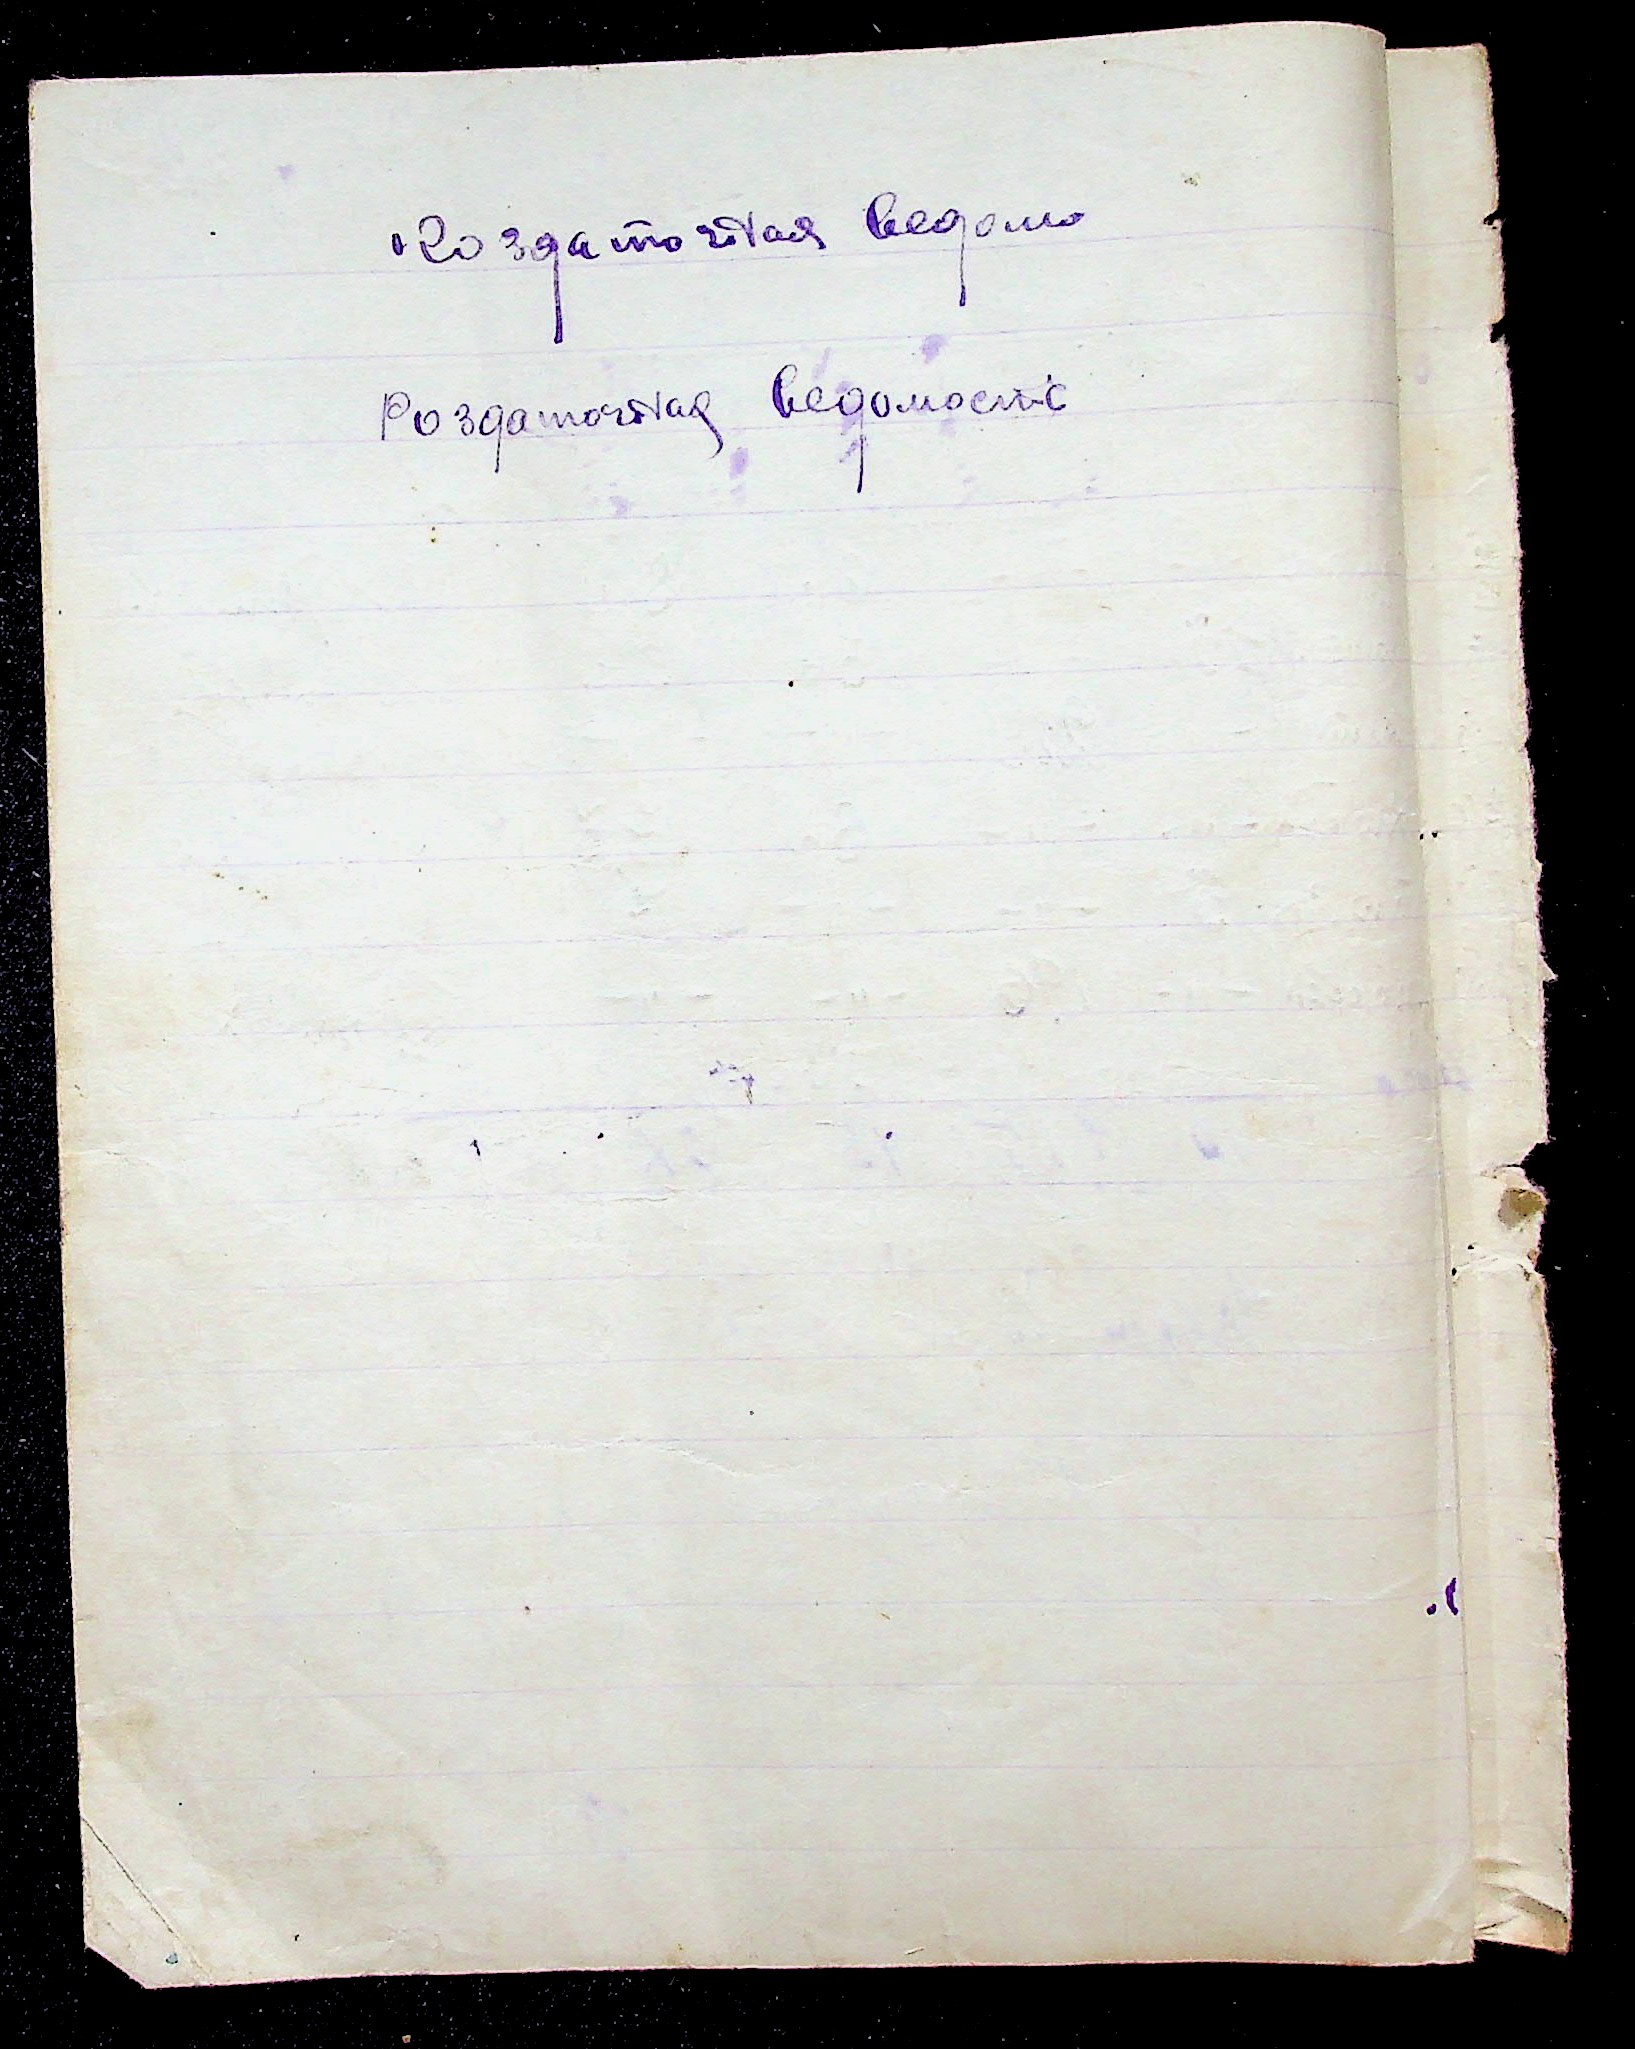 Роздаточная ведомо
Роздаточная ведомость